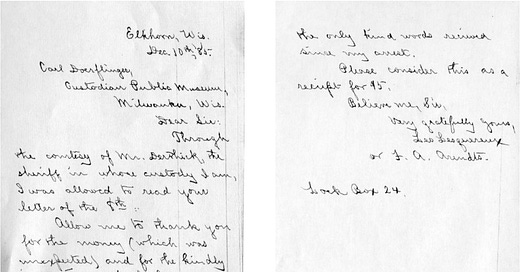 Elkhorn, Wis.
Dec. 10th, 85.
Carl Doerflinger,
Custodian Public Museum,
Milwaukee, Wis.
Dear Sir:
Through
the courtesy of Mr. the
sheriff in whose custody I am,
I was allowed to read your
letter of the 8th:
Allow me to thank you
for the money (which was
unexpected) and for the kindly
the only kind words received
since my arrest.
Please consider this as a
receipt for $5.
Believe me, Sir,
Very gratefully yours,
Leo Lesquereux
or L. A. Arendts.
Lock Box 24.